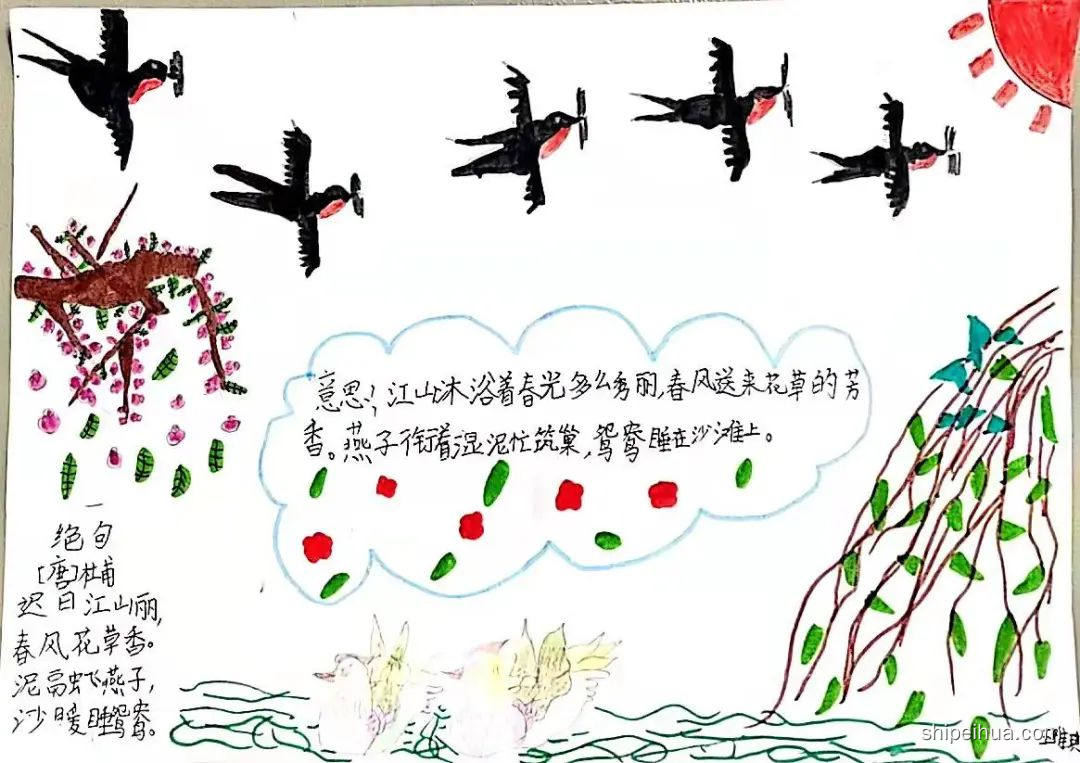 意思:江山沐浴着春光多么秀丽,春风送来花草的芳
香。燕子衔着湿泥忙筑巢,鸳鸯睡在沙滩上。
绝句
[唐]杜甫
迟日江山丽,
春风花草香。
泥融飞燕子,
沙暖睡鸳鸯。
shipeihua.com